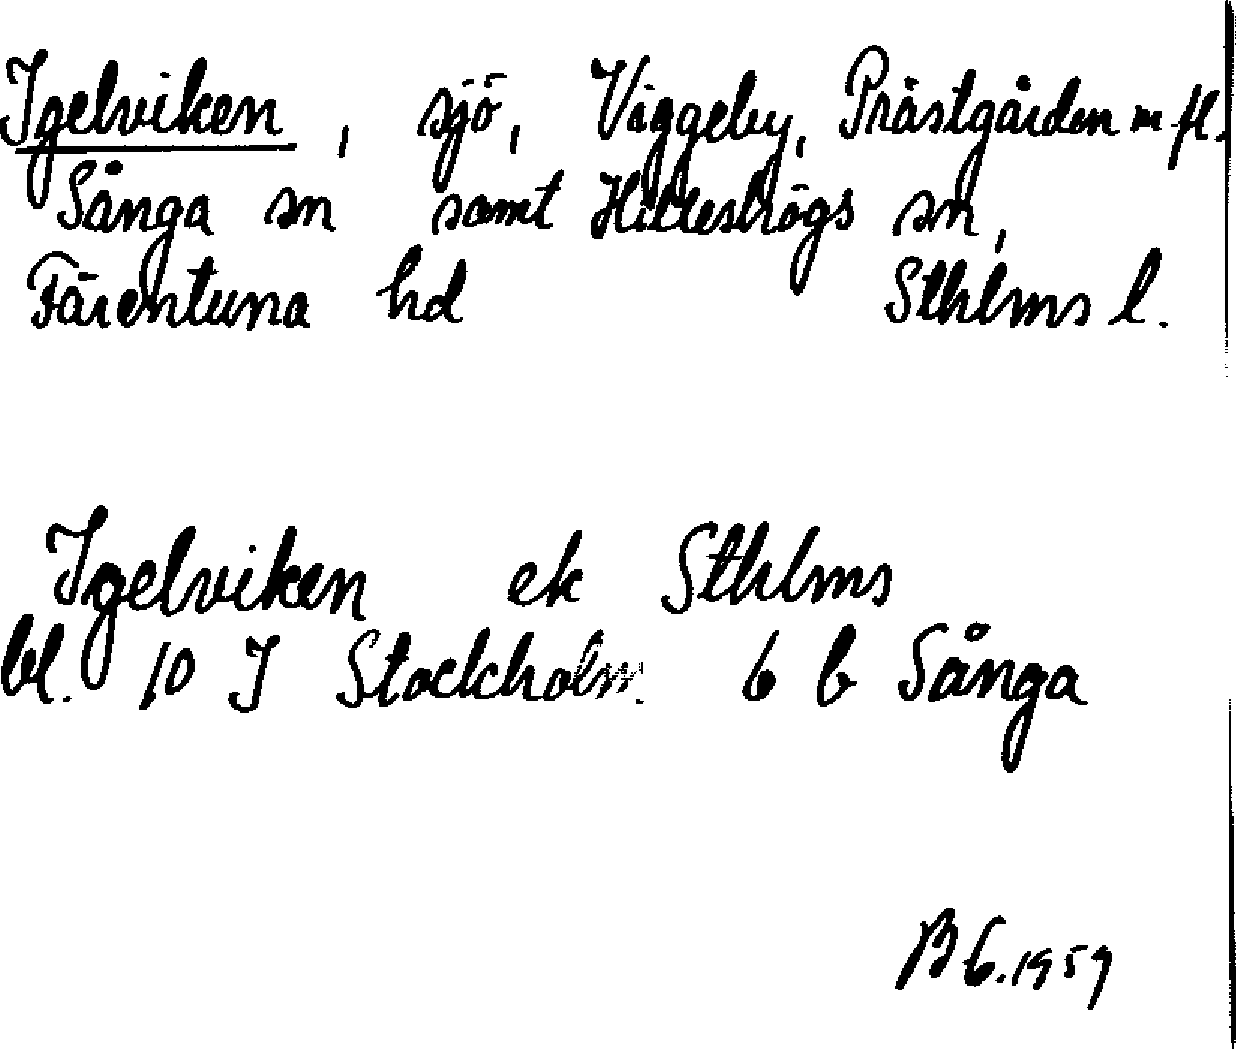 Igelviken, sjö, Väggeby, Prästgården m fl.
Sånga sn samt Hilleshögs sn,
Färentuna hd Sthlms l.
Igelviken ek Sthlms
bl. 10 I Stockholm. 6 b Sånga
BG. 1959